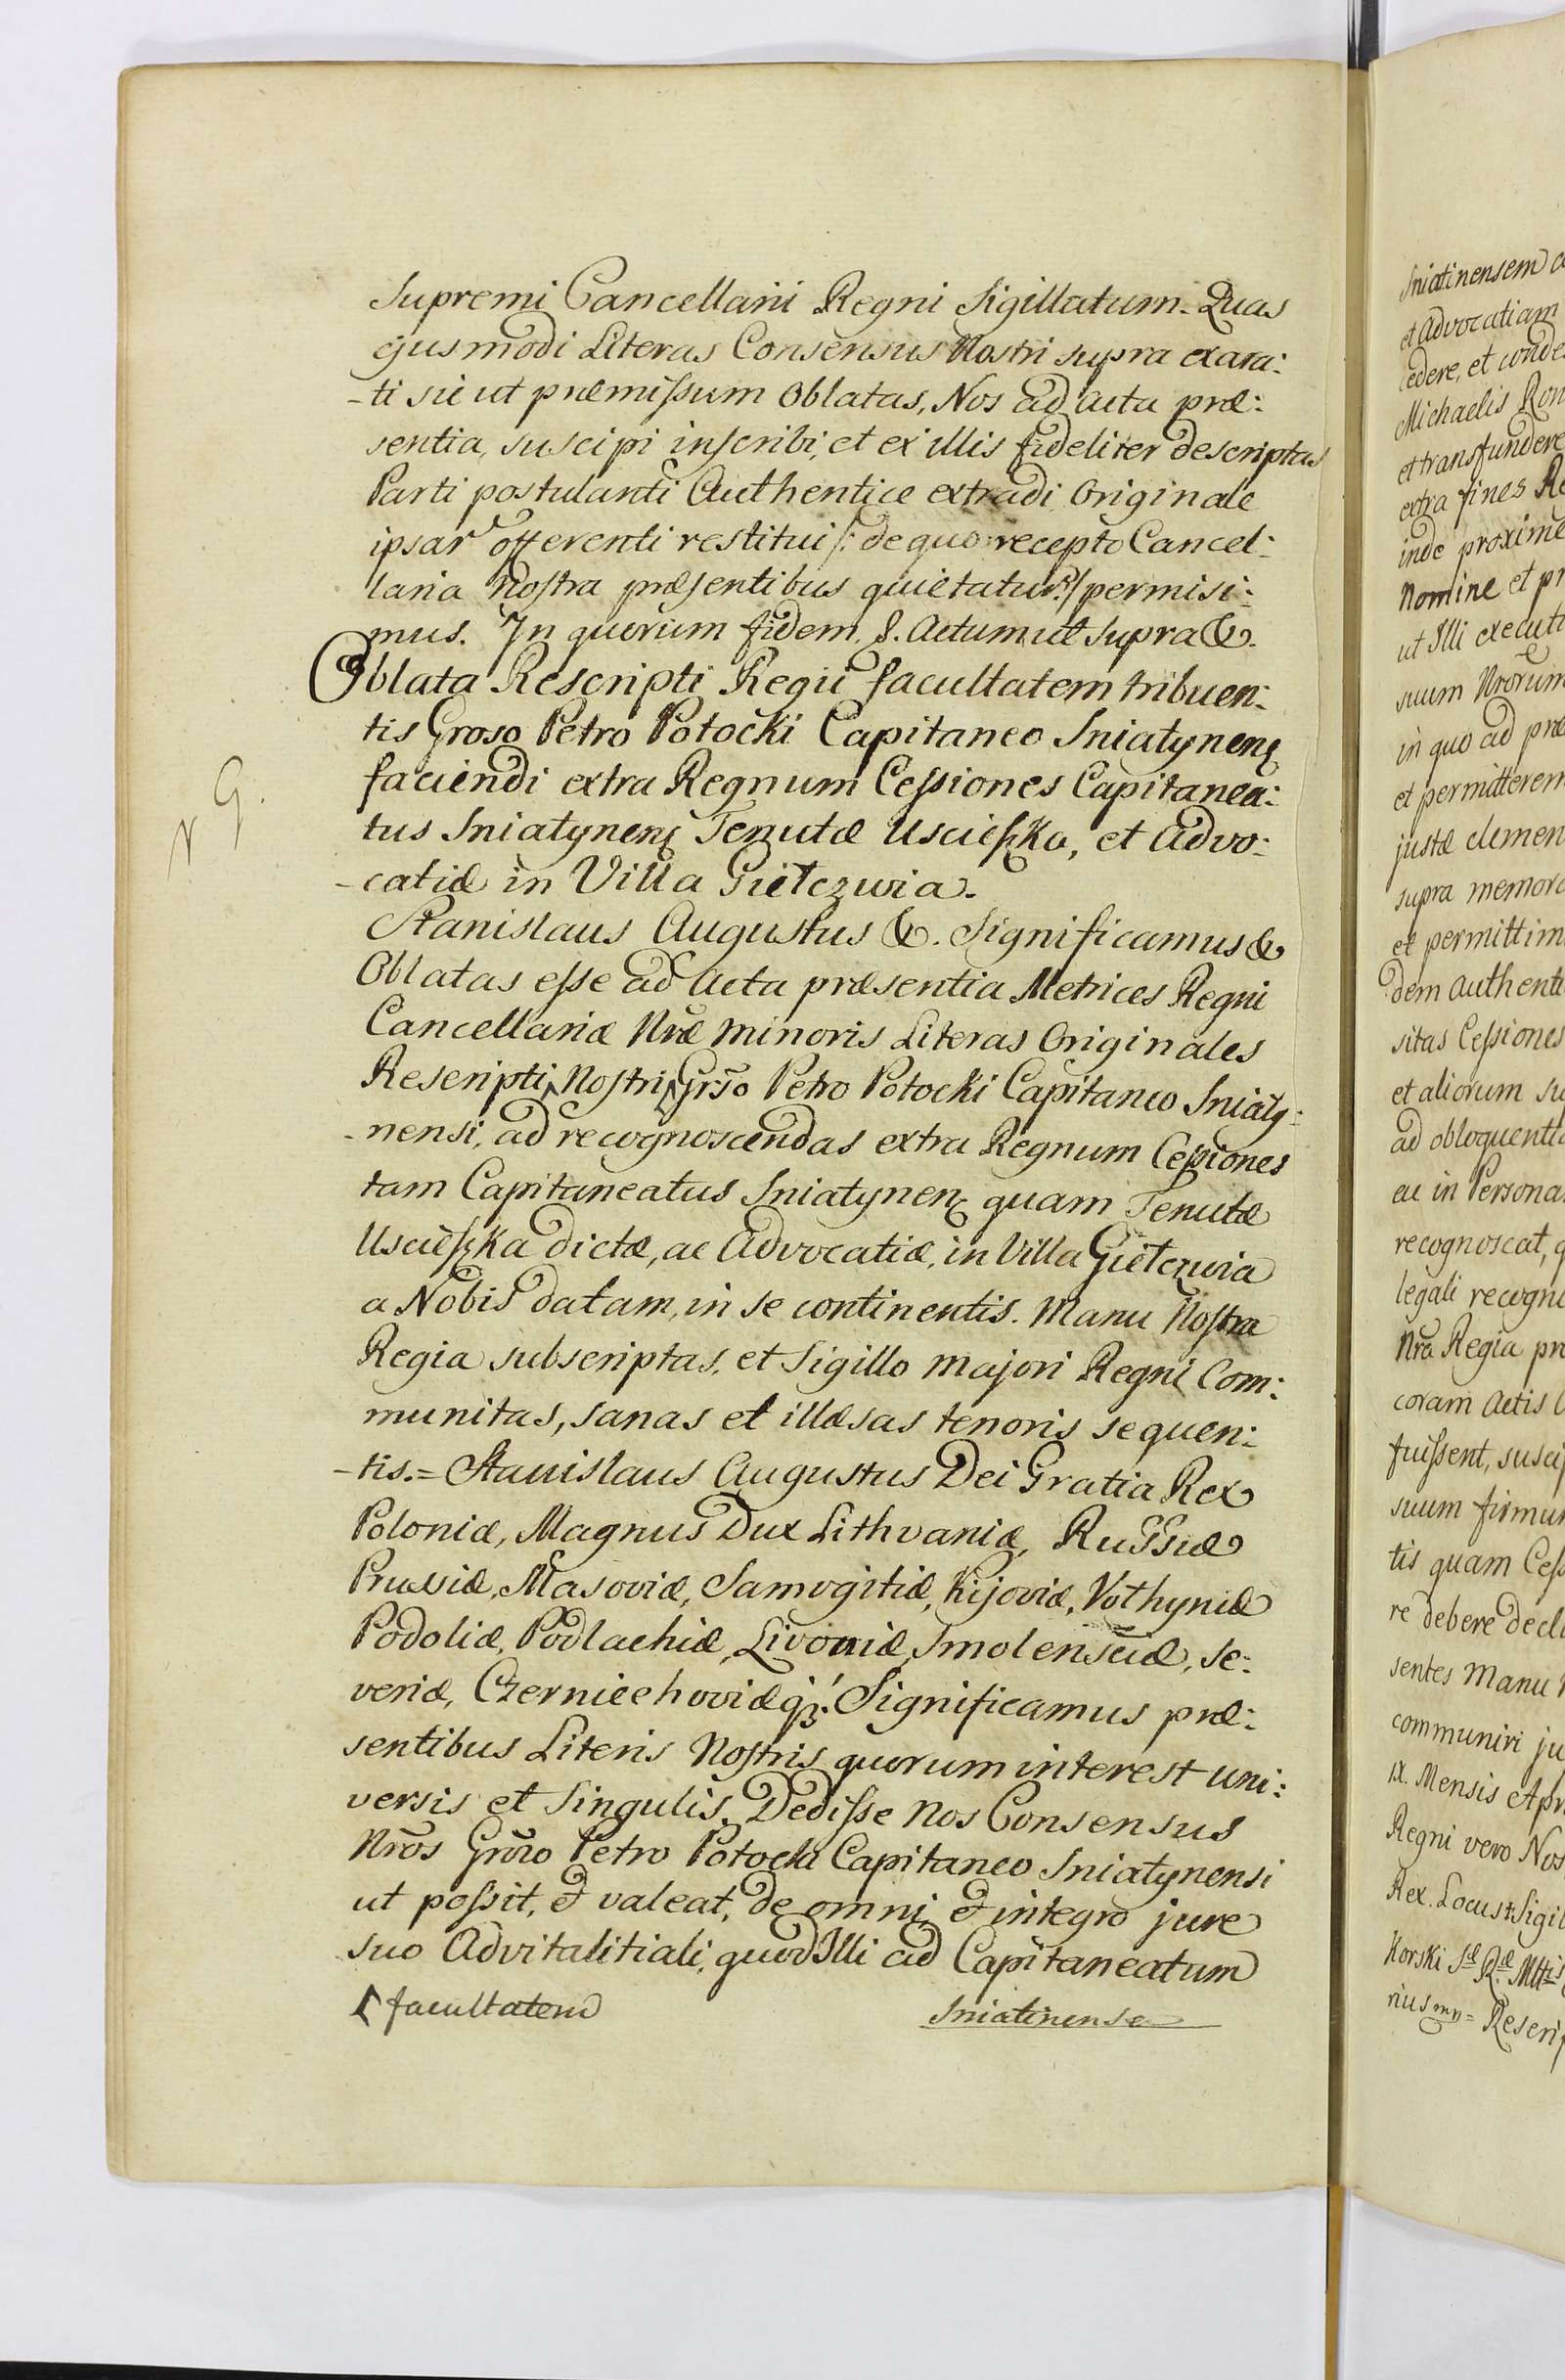 Supremi Cancellarii Regni Sigillatum. Quas
ejusmodi Literas Consensus Nostri supra exara:
-ti sic ut præmissum Oblatas, Nos ad Acta præ:
sentia, suscipi inscribi, et ex illis fideliter descriptas
Parti postulanti Authentice extradi Originale
ipsar offerenti restitui /: de quo recepto Cancel:
laria Nostra præsentibus quietatur :/ permisi:
mus. In quorum fidem &. Actum ut supra &.
Oblata Rescripti Regii facultatem tribuen:
tis Groso Petro Potocki Capitaneo Sniatynen
faciendi extra Regnum Cessiones Capitanea:
tus Sniatynen Tenutæ Uscieszka, et Advo:
-catiæ in Villa Gietczwia.
Stanislaus Augustus &. Significamus &
Oblatas esse ad Acta præsentia Metrices Regni
Cancellariæ Nræ minoris Literas Originales
Rescripti Nostri Grso Petro Potocki Capitaneo Sniaty:
-nensi, ad recognoscendas extra Regnum Cessiones
tam Capitaneatus Sniatynen quam Tenutæ
Uscieszka dictæ, ac Advocatiæ, in Villa Gietczwia
a Nobis datam, in se continentis. Manu Nostra
Regia subscriptas, et Sigillo majori Regni Com:
munitas, sanas et illæsas tenoris sequen:
-tis. = Stanislaus Augustus Dei Gratia Rex
Poloniæ, Magnus Dux Lithvaniæ, Russiæ
Prussiæ, Masoviæ, Samogitiæ, Kijoviæ, Volhyniæ
Podoliæ, Podlachiæ, Livoniæ, Smolensciæ, Se:
veriæ, Czerniechoviæq;. Significamus præ:
sentibus Literis Nostris quorum interest uni:
versis et Singulis. Dedisse Nos Consensus
Nros Groso Petro Potocki Capitaneo Sniatynensi
ut possit, & valeat, de omni & integro jure
suo Advitalitiali, quod Illi ad Capitaneatum
facultatem
Sniatinense
N G.
Sniatinensem
et Advocatiam
cedere, et
Michaelis
et transfundere
extra fines
inde proxime
Nomine et
ut Illi
suum Nrorum
in quo ad
et permitterem
justæ
supra
et
dem
sitas Cessiones
et aliorum
ad
in
recognoscat,
legali
Nra Regia
coram Actis
fuissent,
suum
tis quam
re debere
sentes Manu
communiri
IX. Mensis
Regni vero
Rex. Locus +